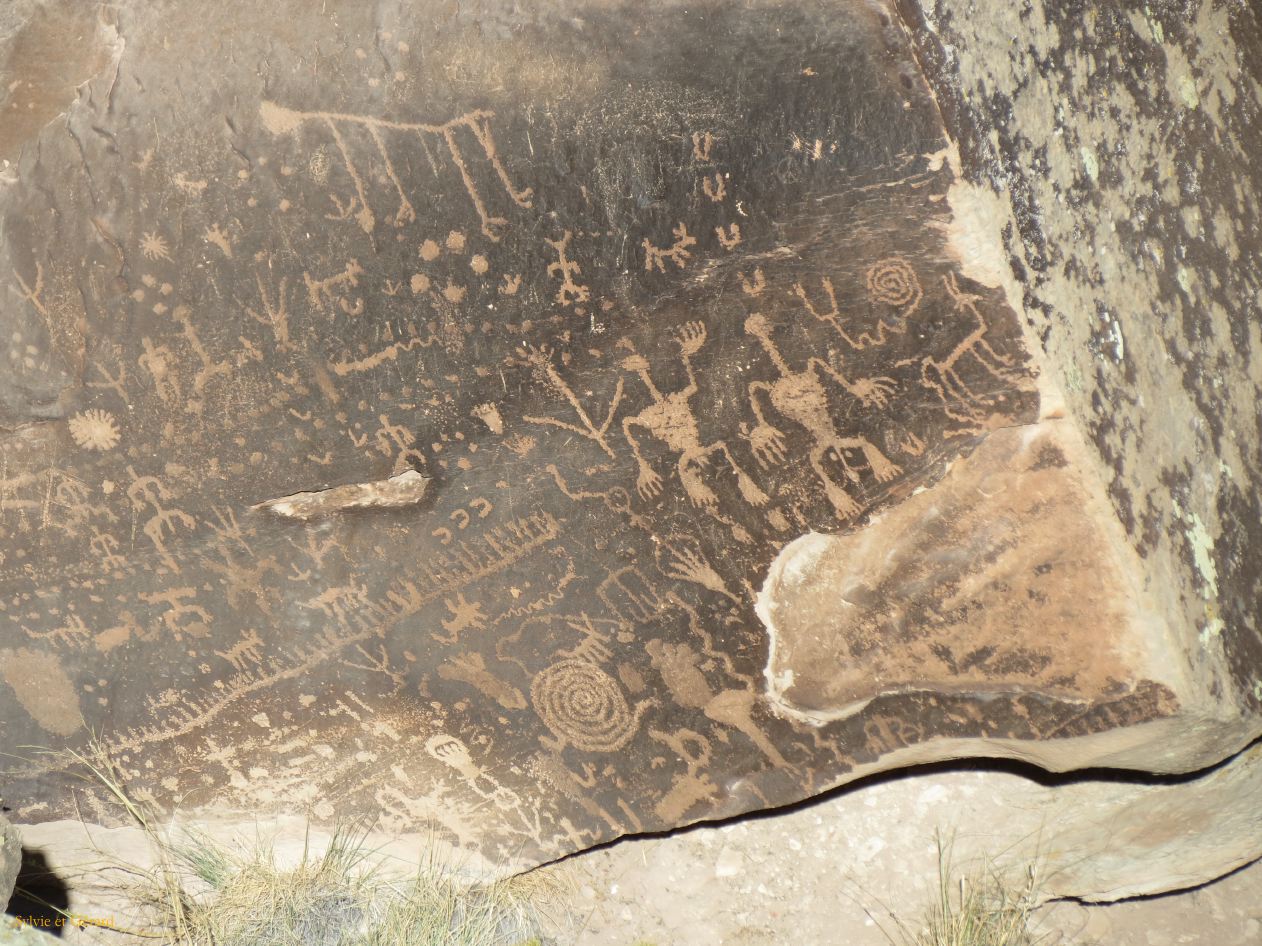 Sylvie et Gérard